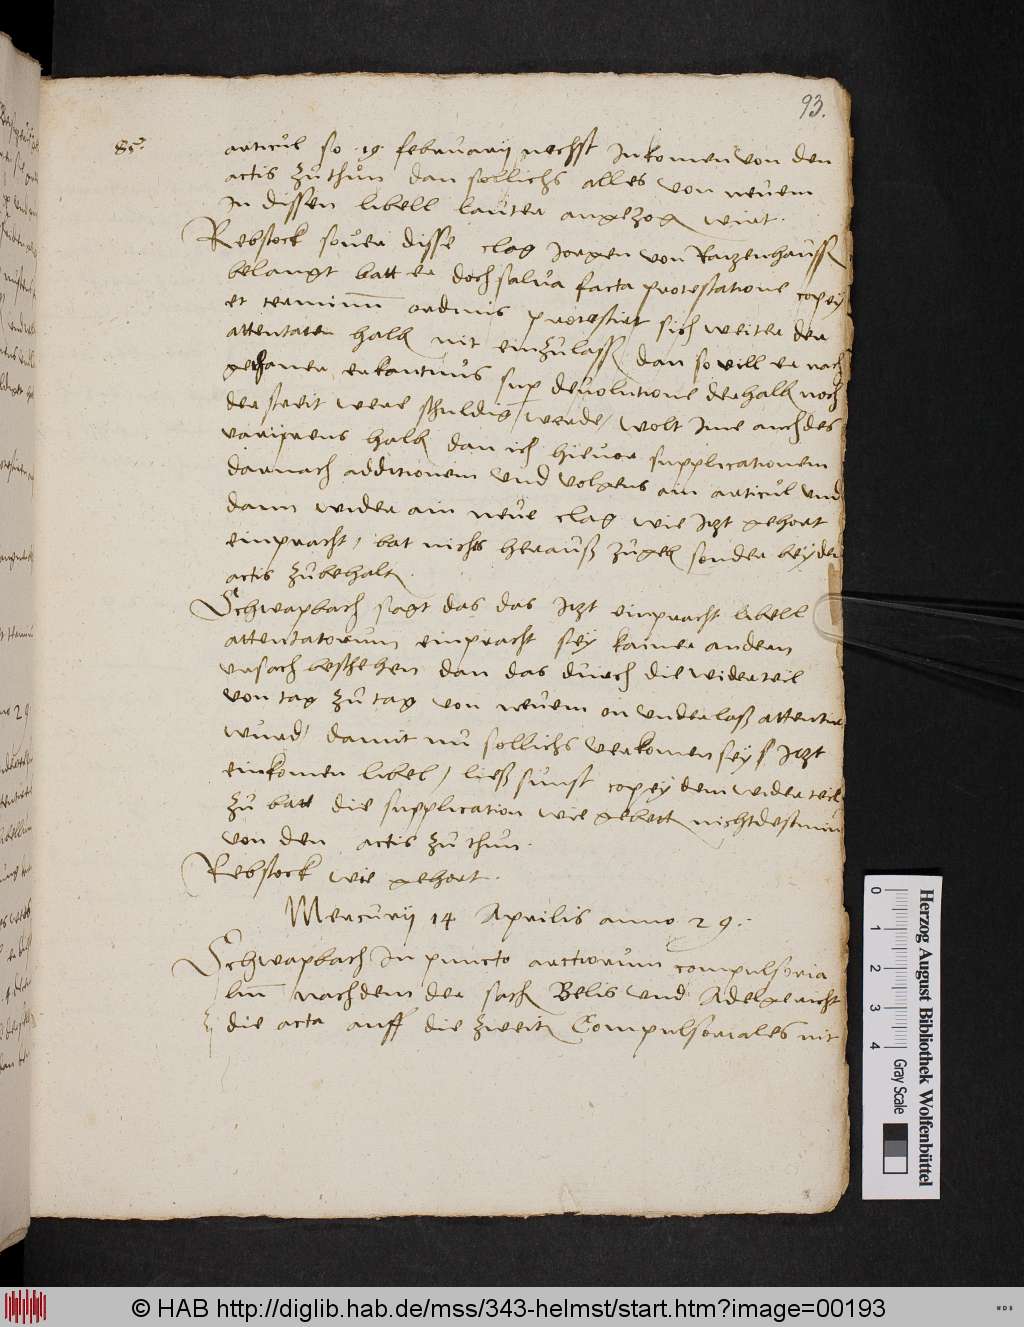 93.
85.
articul so 19 februarij nechst Inkomen von den
actis zu thun dan sollichs alles von neuem
In dissen libell lauter angezog wirt.
Rebstock souer disse clag Jorgen von Ratzenhauss
belangt batt er doch salua facta protestatione copej
et terminum ordinis protestirt sich weiter der
attentaten halb nit einzulass dan so vill er nach
gethaner erkantnus sup deuolutione derhalb noch
der streit were schuldig werde / wolt Ime auch des
varijrens halb dan ich hieuor supplicationem
darnach additionem vnd volgens ain articul vnd
dann wider ain neue clag wie Jtzt gehort
einpracht / bat nichts herauß zugeb sonder bey den
actis zubehalt.
Schwapbach sagt das das Jtzt einpracht libell
attentatorum einpracht sey kainer andern
vrsach beschehen dan das durch die widerteil
von tag zu tag von neuem on vnderlaß attentirt
wurd / damit nu sollichs verkomen sey Jtzt
einkomen libel / ließ sunst copej dem widerteil
zu batt die supplication wie gebett nichtdestmin
von den actis zu thun.
Rebstock wie gehort.
Mercurij 14 Aprilis anno 29.
Schwapbach In puncto arctiorum compulsoria
lium nachdem der sach Belis vnd Adelgericht
die acta auff die zweit Compulsoriales nit
Herzog August Bibliothek Wolfenbüttel
0 1 2 3 4
Gray Scale
© HAB http://diglib.hab.de/mss/343-helmst/start.htm?image=00193
WDB